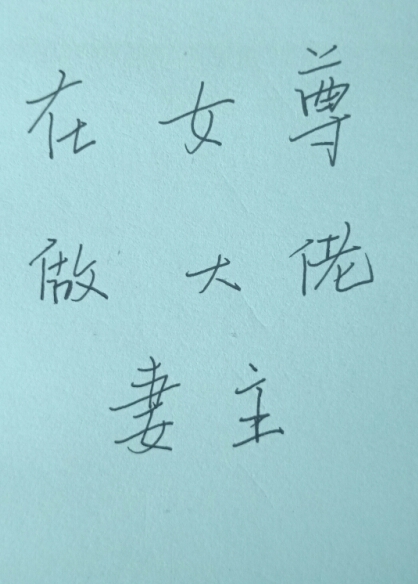 在女尊
做大佬
妻主